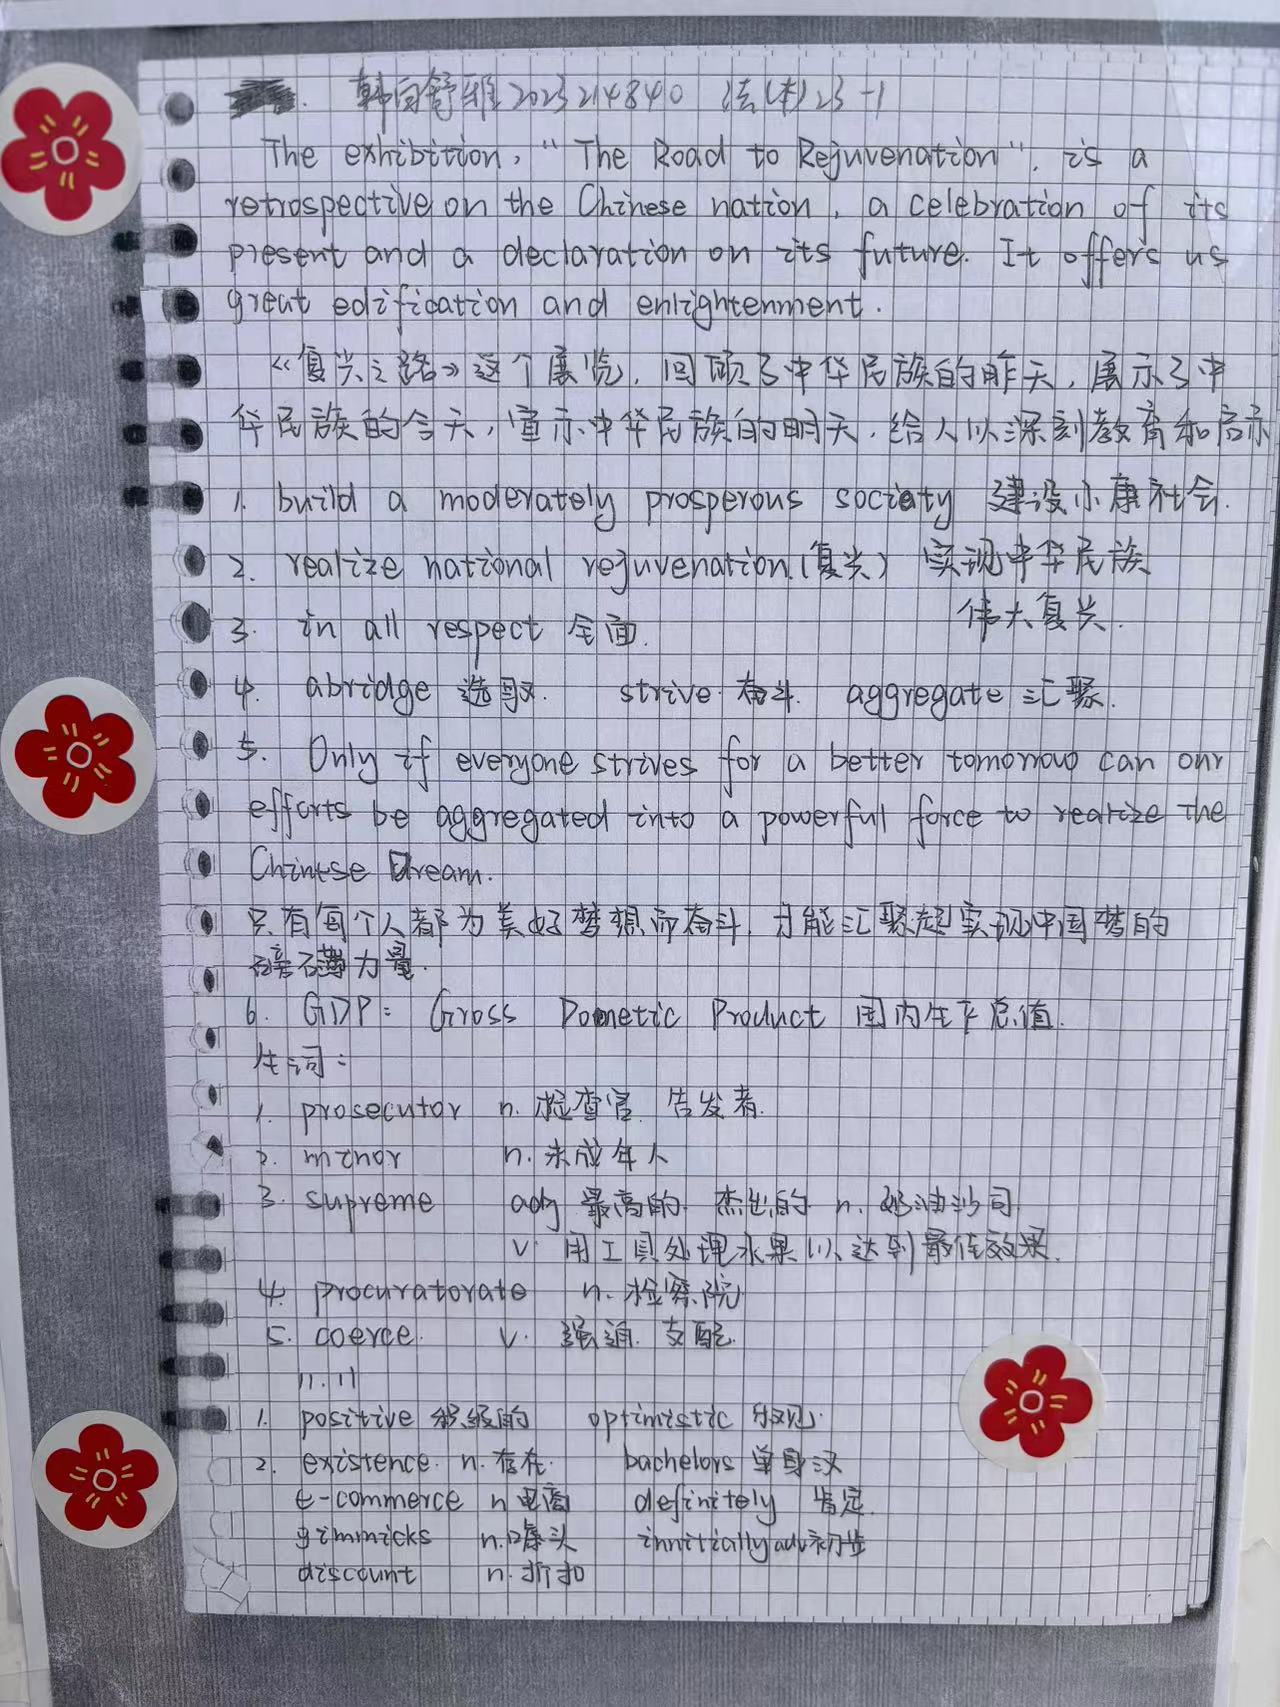 韩向舒雅 2023214840 法(本)23-1
The exhibition, "The Road to Rejuvenation", is a
retrospective on the Chinese nation, a celebration of its
present and a declaration on its future. It offers us
great edification and enlightenment.
《复兴之路》这个展览，回顾了中华民族的昨天，展示了中
华民族的今天，宣示中华民族的明天，给人以深刻教育和启示
1. build a moderately prosperous society 建设小康社会.
2. realize national rejuvenation (复兴) 实现中华民族
伟大复兴.
3. in all respect 全面.
4. abridge 选取. strive 奋斗. aggregate 汇聚.
5. Only if everyone strives for a better tomorrow can our
efforts be aggregated into a powerful force to realize the
Chinese Dream.
只有每个人都为美好梦想而奋斗，才能汇聚起实现中国梦的
磅礴力量.
6. GDP: Gross Dometic Product 国内生产总值.
生词：
1. prosecutor n. 检查官 告发者.
2. minor n. 未成年人
3. supreme adj 最高的 杰出的 n. 奶油沙司
v. 用工具处理水果以达到最佳效果.
4. procuratorate n. 检察院
5. coerce. v. 强迫. 支配.
11.11
1. positive 积极的 optimistic 乐观.
2. existence. n. 存在. bachelors 单身汉
e-commerce n 电商 definitely 肯定.
gimmicks n. 噱头 innitially adv 初步
discount n. 折扣